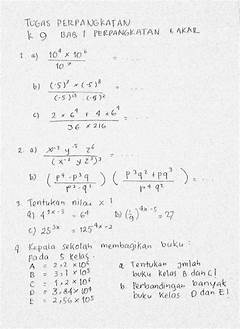 TUGAS PERPANGKATAN
K 9 BAB 1 PERPANGKATAN & AKAR
1. a) 10⁴ × 10⁶ / 10⁷ = ....
b) (-5)⁷ × (-5)⁸ / (-5)¹³ (-5)² = ....
c) 2 × 6⁴ + 4 × 6⁴ / 36 × 216 = ....
2. a) x⁻³ y⁻⁵ z⁶ / (x⁻² y z²)³ = ....
b) (p⁴ · p³q / p² · q²) (p³q² + pq³ / p⁴ q²)
3. Tentukan nilai x !
a) 4³ˣ⁻³ = 64 b) (1/3)⁴ˣ⁻⁵ = 27
c) 25³ˣ = 125⁴ˣ⁻²
4. Kepala sekolah membagikan buku :
pada 5 kelas.
A = 2,2 × 10⁵
B = 3,1 × 10⁵
C = 1,2 × 10⁶
D = 3,84 × 10⁴
E = 2,56 × 10⁵
a Tentukan jmlah
buku kelas B dan C!
b. Perbandingan banyak
buku kelas D dan E!